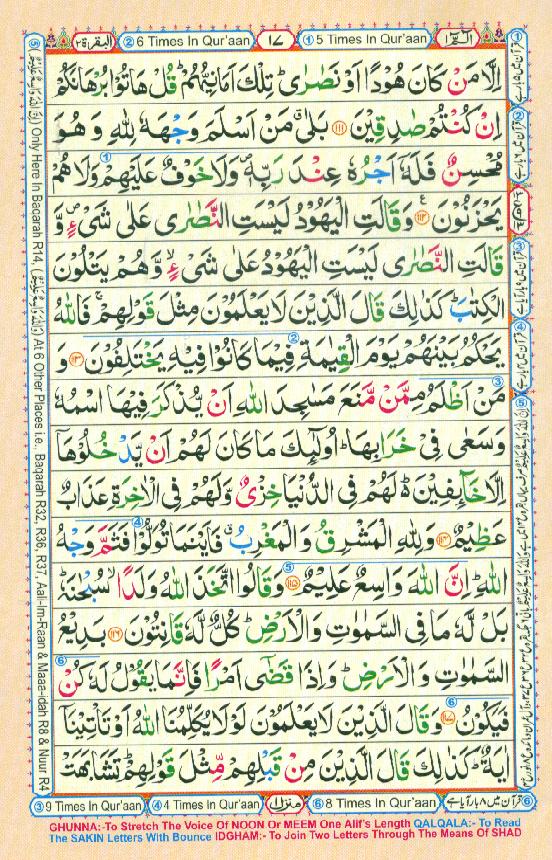 البقرة ٢
② 6 Times In Qur'aan
١٧
① 5 Times In Qur'aan
الٓمّٓ ١
اِلَّا مَنْ كَانَ هُوْدًا اَوْ نَصٰرٰى ؕ تِلْكَ اَمَانِيُّهُمْ ؕ قُلْ هَاتُوْا بُرْهَانَكُمْ
اِنْ كُنْتُمْ صٰدِقِيْنَ ﴿۱۱۱﴾ بَلٰى ۗ مَنْ اَسْلَمَ وَجْهَهٗ لِلّٰهِ وَ هُوَ
مُحْسِنٌ فَلَهٗۤ اَجْرُهٗ عِنْدَ رَبِّهٖ ۪ وَلَا خَوْفٌ عَلَيْهِمْ وَلَا هُمْ
يَحْزَنُوْنَ ﴿۱۱۲﴾ وَقَالَتِ الْيَهُوْدُ لَيْسَتِ النَّصٰرٰى عَلٰى شَىْءٍ ۪ وَّ
قَالَتِ النَّصٰرٰى لَيْسَتِ الْيَهُوْدُ عَلٰى شَىْءٍ ۙ وَّهُمْ يَتْلُوْنَ
الْكِتٰبَ ؕ كَذٰلِكَ قَالَ الَّذِيْنَ لَا يَعْلَمُوْنَ مِثْلَ قَوْلِهِمْ ۚ فَاللّٰهُ
يَحْكُمُ بَيْنَهُمْ يَوْمَ الْقِيٰمَةِ فِيْمَا كَانُوْا فِيْهِ يَخْتَلِفُوْنَ ﴿۱۱۳﴾ وَ
مَنْ اَظْلَمُ مِمَّنْ مَّنَعَ مَسٰجِدَ اللّٰهِ اَنْ يُّذْكَرَ فِيْهَا اسْمُهٗ
وَسَعٰى فِىْ خَرَابِهَا ؕ اُولٰٓئِكَ مَا كَانَ لَهُمْ اَنْ يَّدْخُلُوْهَاۤ
اِلَّا خَآئِفِيْنَ ؕ لَهُمْ فِى الدُّنْيَا خِزْىٌ وَّلَهُمْ فِى الْاٰخِرَةِ عَذَابٌ
عَظِيْمٌ ﴿۱۱۴﴾ وَلِلّٰهِ الْمَشْرِقُ وَالْمَغْرِبُ ۗ فَاَيْنَمَا تُوَلُّوْا فَثَمَّ وَجْهُ
اللّٰهِ ؕ اِنَّ اللّٰهَ وَاسِعٌ عَلِيْمٌ ﴿۱۱۵﴾ وَقَالُوا اتَّخَذَ اللّٰهُ وَلَدًا ۙ سُبْحٰنَهٗ ؕ
بَلْ لَّهٗ مَا فِى السَّمٰوٰتِ وَالْاَرْضِ ؕ كُلٌّ لَّهٗ قٰنِتُوْنَ ﴿۱۱۶﴾ بَدِيْعُ
السَّمٰوٰتِ وَ الْاَرْضِ ؕ وَاِذَا قَضٰۤى اَمْرًا فَاِنَّمَا يَقُوْلُ لَهٗ كُنْ
فَيَكُوْنُ ﴿۱۱۷﴾ وَقَالَ الَّذِيْنَ لَا يَعْلَمُوْنَ لَوْ لَا يُكَلِّمُنَا اللّٰهُ اَوْ تَاْتِيْنَاۤ
اٰيَةٌ ؕ كَذٰلِكَ قَالَ الَّذِيْنَ مِنْ قَبْلِهِمْ مِّثْلَ قَوْلِهِمْ ؕ تَشَابَهَتْ
⑤ (اِنَّ اللّٰهَ وَاسِعٌ عَلِيْمٌ) Only Here In Baqarah R14, (وَاللّٰهُ وَاسِعٌ عَلِيْمٌ) At 6 Other Places i.e., Baqarah R32, R36, R37, Aali-Im-Raan & Maaa-idah R8 & Nuur R4
③ 9 Times In Qur'aan
④ 4 Times In Qur'aan
منزل ١
⑥ 8 Times In Qur'aan
⑥ قرآن میں ۸ بار آیا ہے
GHUNNA:-To Stretch The Voice Of NOON Or MEEM One Alif's Length QALQALA:- To Read
The SAKIN Letters With Bounce IDGHAM:- To Join Two Letters Through The Means Of SHAD